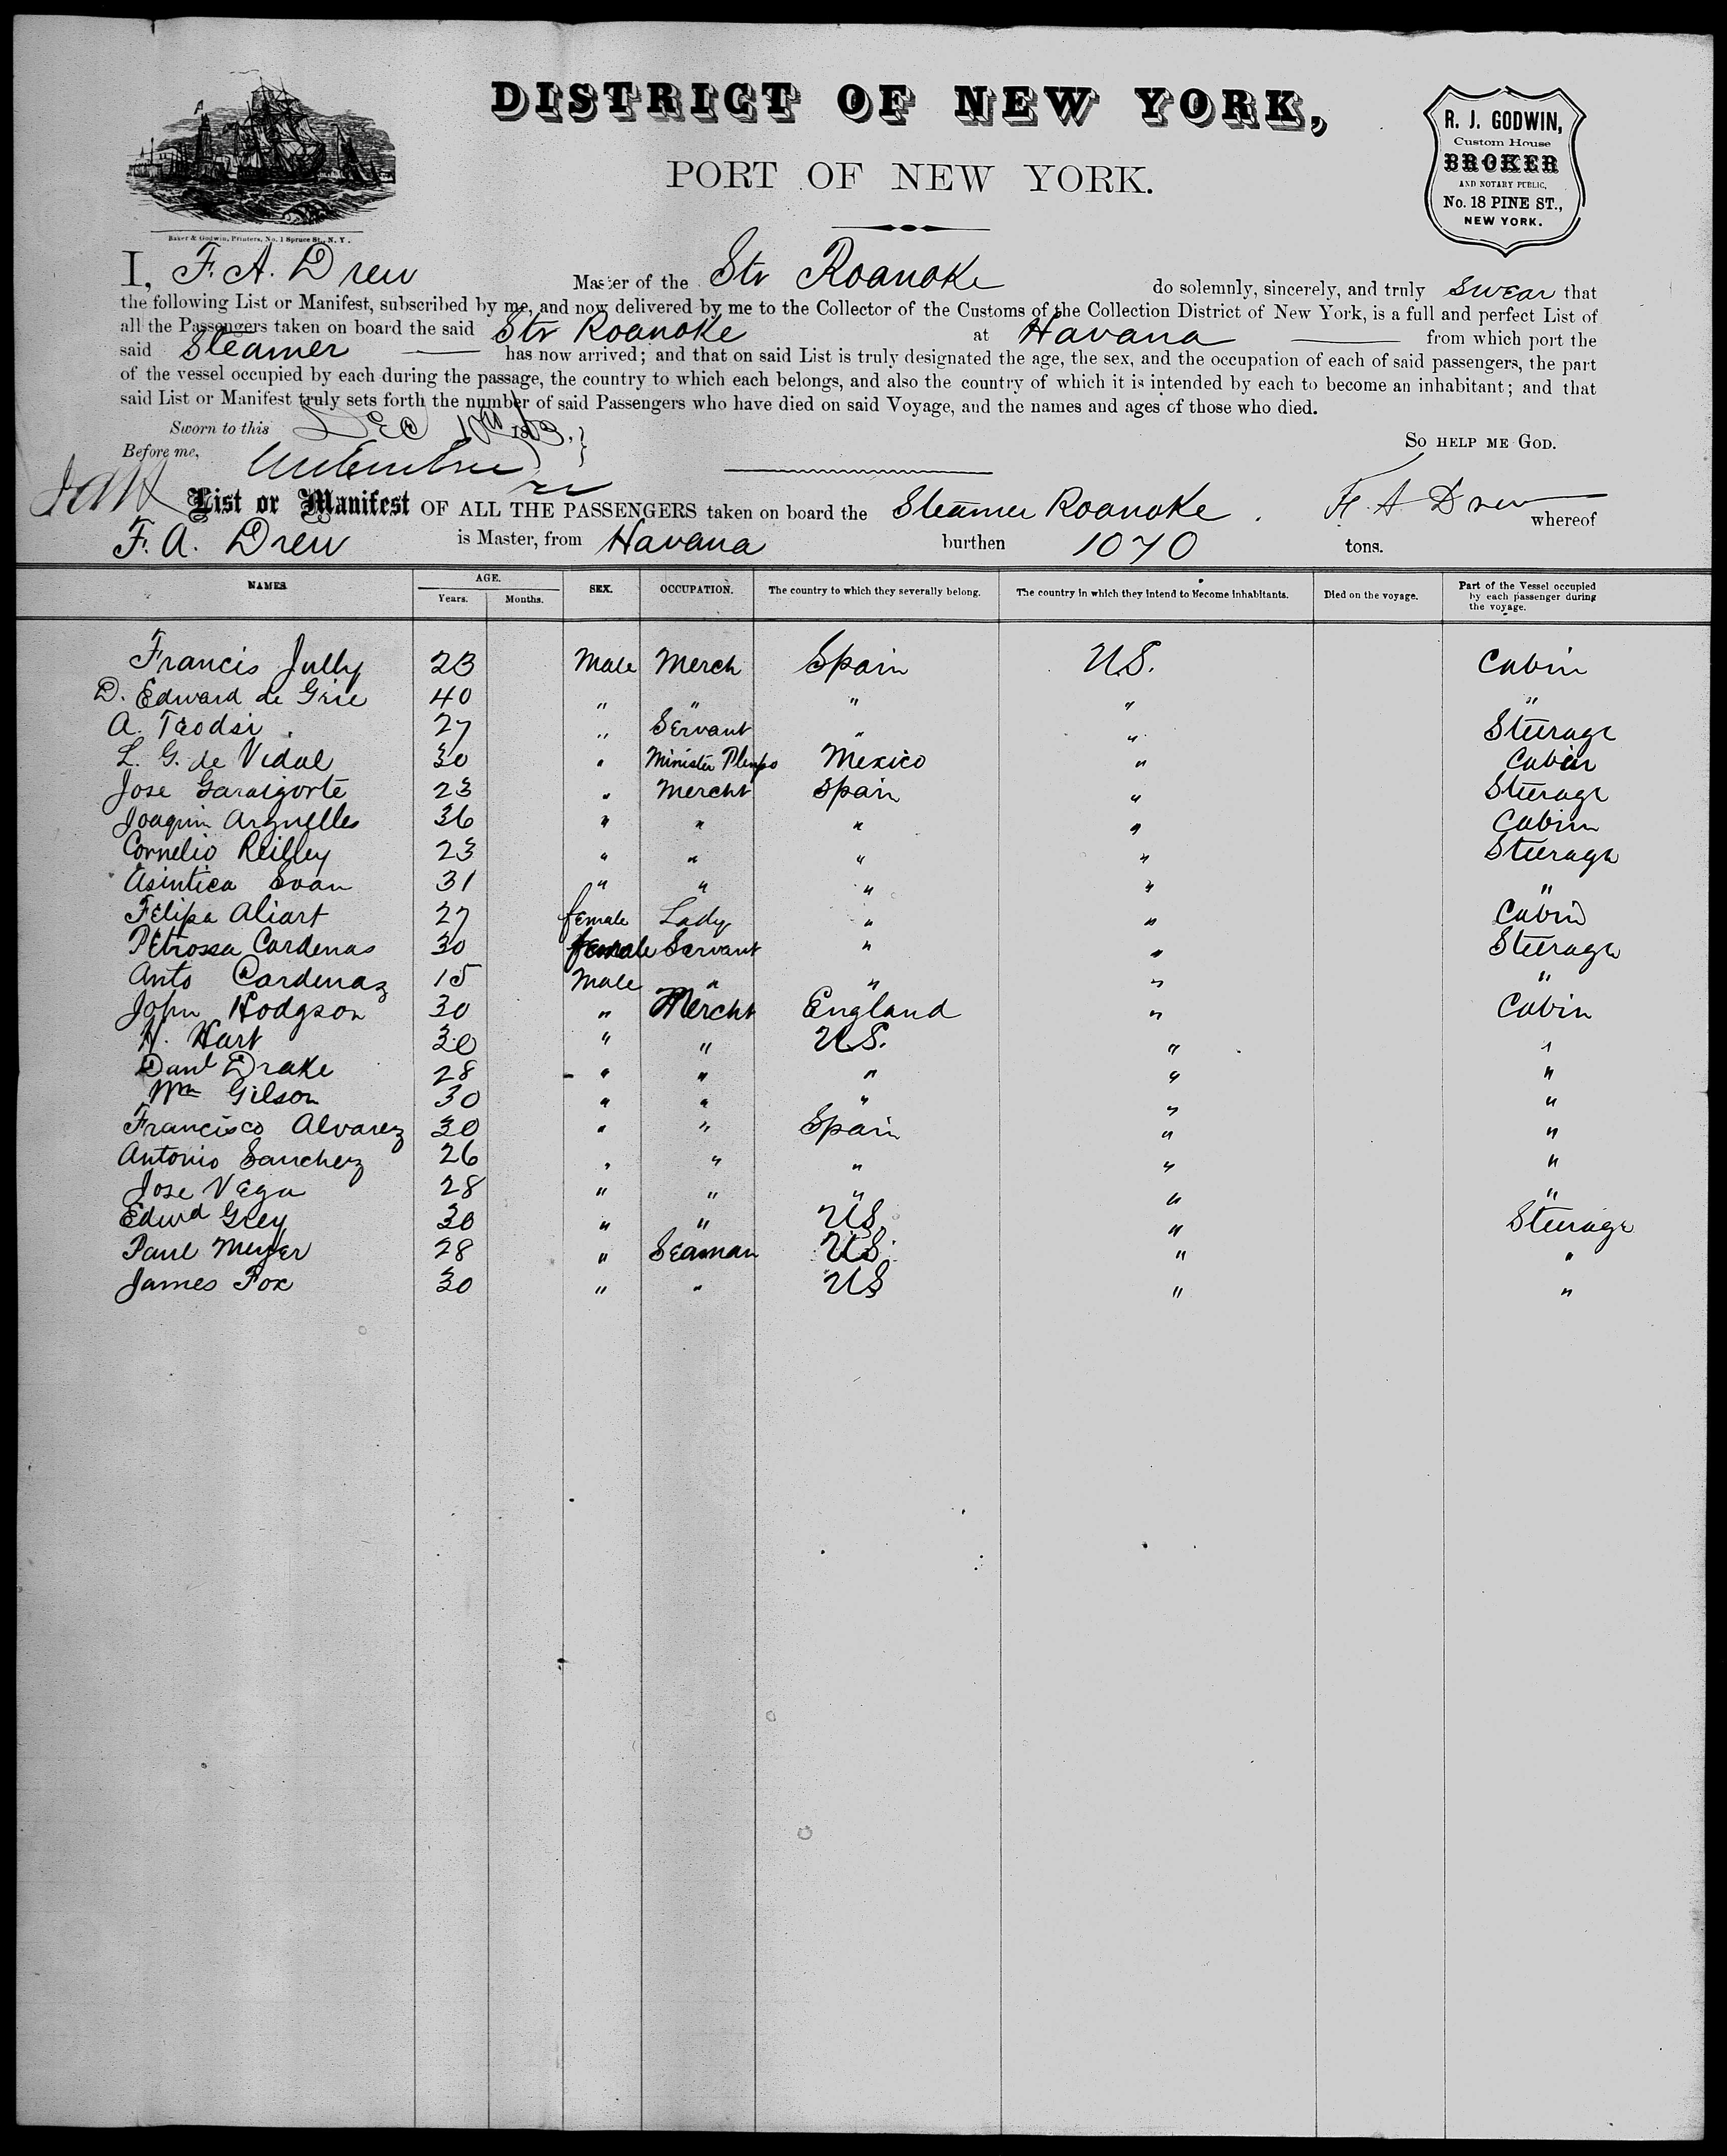 DISTRICT OF NEW YORK,
PORT OF NEW YORK.
R. J. GODWIN,
Custom House
BROKER
AND NOTARY PUBLIC,
No. 18 PINE ST.,
NEW YORK.
Baker & Godwin, Printers, No. 1 Spruce St., N. Y.
I, F. A. Drew Master of the Str Roanoke do solemnly, sincerely, and truly swear that
the following List or Manifest, subscribed by me, and now delivered by me to the Collector of the Customs of the Collection District of New York, is a full and perfect List of
all the Passengers taken on board the said Str Roanoke at Havana from which port the
said Steamer has now arrived; and that on said List is truly designated the age, the sex, and the occupation of each of said passengers, the part
of the vessel occupied by each during the passage, the country to which each belongs, and also the country of which it is intended by each to become an inhabitant; and that
said List or Manifest truly sets forth the number of said Passengers who have died on said Voyage, and the names and ages of those who died.
Sworn to this Dec 10th
Before me,
SO HELP ME GOD.
List or Manifest OF ALL THE PASSENGERS taken on board the Steamer Roanoke. F. A Drew whereof
F. A. Drew is Master, from Havana burthen 1070 tons.
NAMES AGE. Years. Months. SEX. OCCUPATION. The country to which they severally belong. The country in which they intend to become inhabitants. Died on the voyage. Part of the Vessel occupied by each passenger during the voyage.
Francis Jully 23 Male Merch Spain U.S. Cabin
D. Edward de Grie 40 " " " " "
A. Teodsi 27 " Servant " " Steerage
L. G. de Vidal 30 " Minister Plenpo Mexico " Cabin
Jose Garaigorte 23 " Mercht Spain " Steerage
Joaquin Arguelles 36 " " " " Cabin
Cornelio Reilley 23 " " " " Steerage
Asintica Soan 31 " " " " "
Felipa Aliart 27 female Lady " " Cabin
Petrossa Cardenas 30 female Servant " " Steerage
Anto Cardenaz 15 Male " " " "
John Hodgson 30 " Mercht England " Cabin
H. Hart 30 " " U.S. " "
Danl Drake 28 " " " " "
Wm Gilson 30 " " " " "
Francisco Alvarez 30 " " Spain " "
Antonio Sanchez 26 " " " " "
Jose Vega 28 " " " " "
Edwd Grey 30 " " US. " Steerage
Paul Meyer 28 " Seaman US. " "
James Fox 30 " " US " "